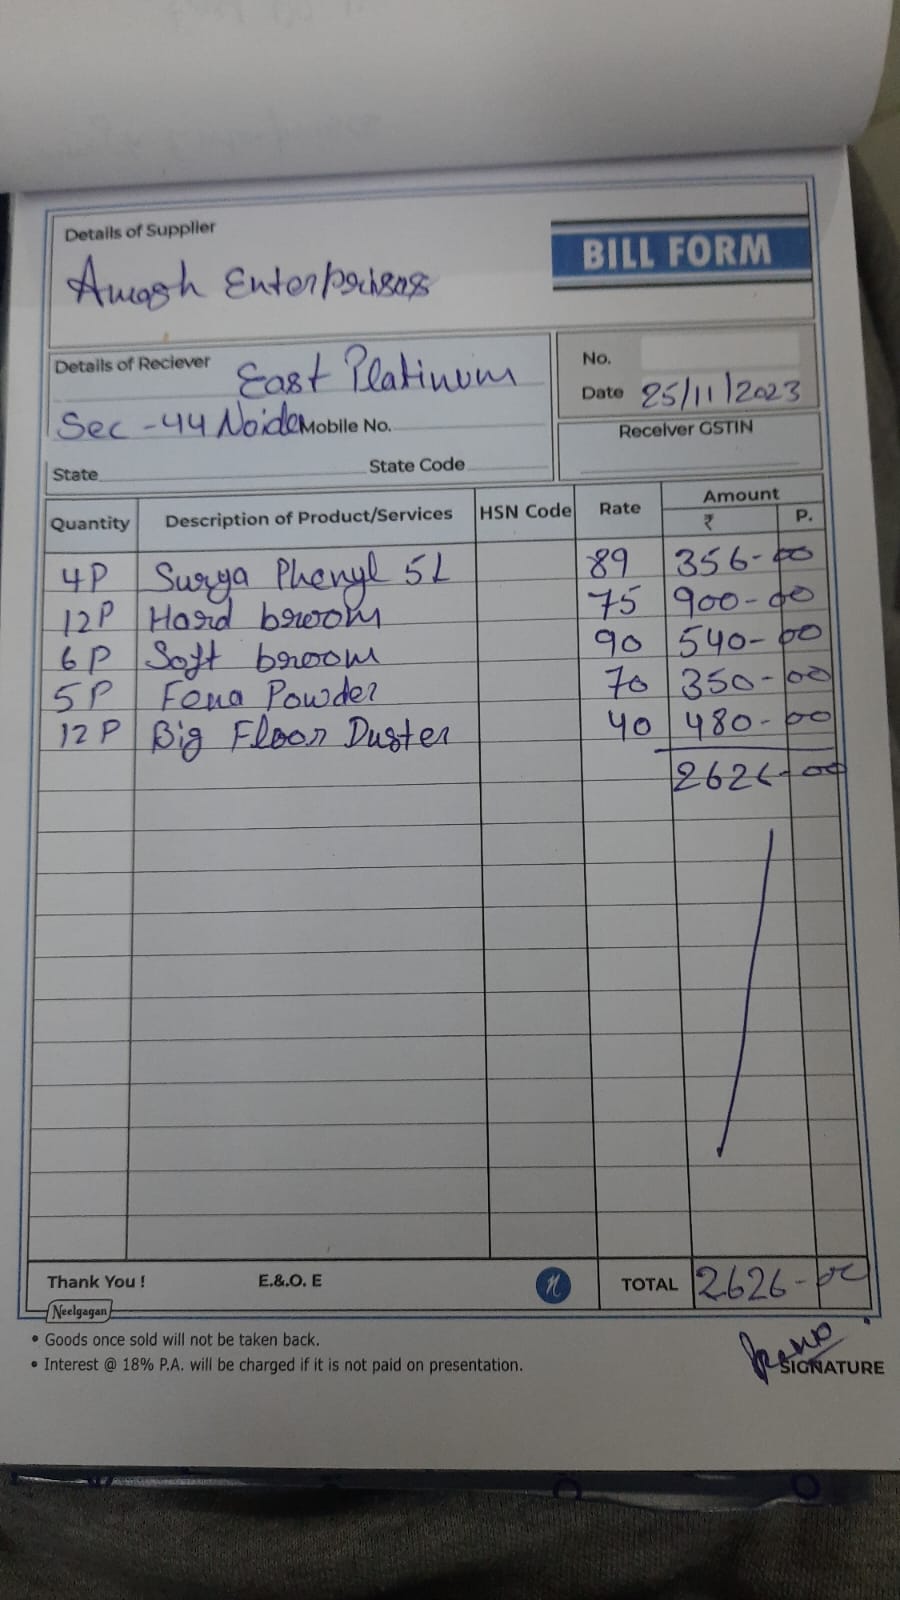 Details of Supplier
BILL FORM
Enterprises
Details of Reciever East Platinum
Sec-44 Noida Mobile No.
State State Code
No.
Date 25/11/2023
Receiver GSTIN
Quantity Description of Product/Services HSN Code Rate Amount
₹ P.
4P Surya Phenyl 5L 89 356-00
12P Hard broom 75 900-00
6P Soft broom 90 540-00
5P Fena Powder 70 350-00
12P Big Floor Duster 40 480-00
2626-00
Thank You ! E.&O. E n TOTAL 2626-00
Neelgagan
• Goods once sold will not be taken back.
• Interest @ 18% P.A. will be charged if it is not paid on presentation.
SIGNATURE